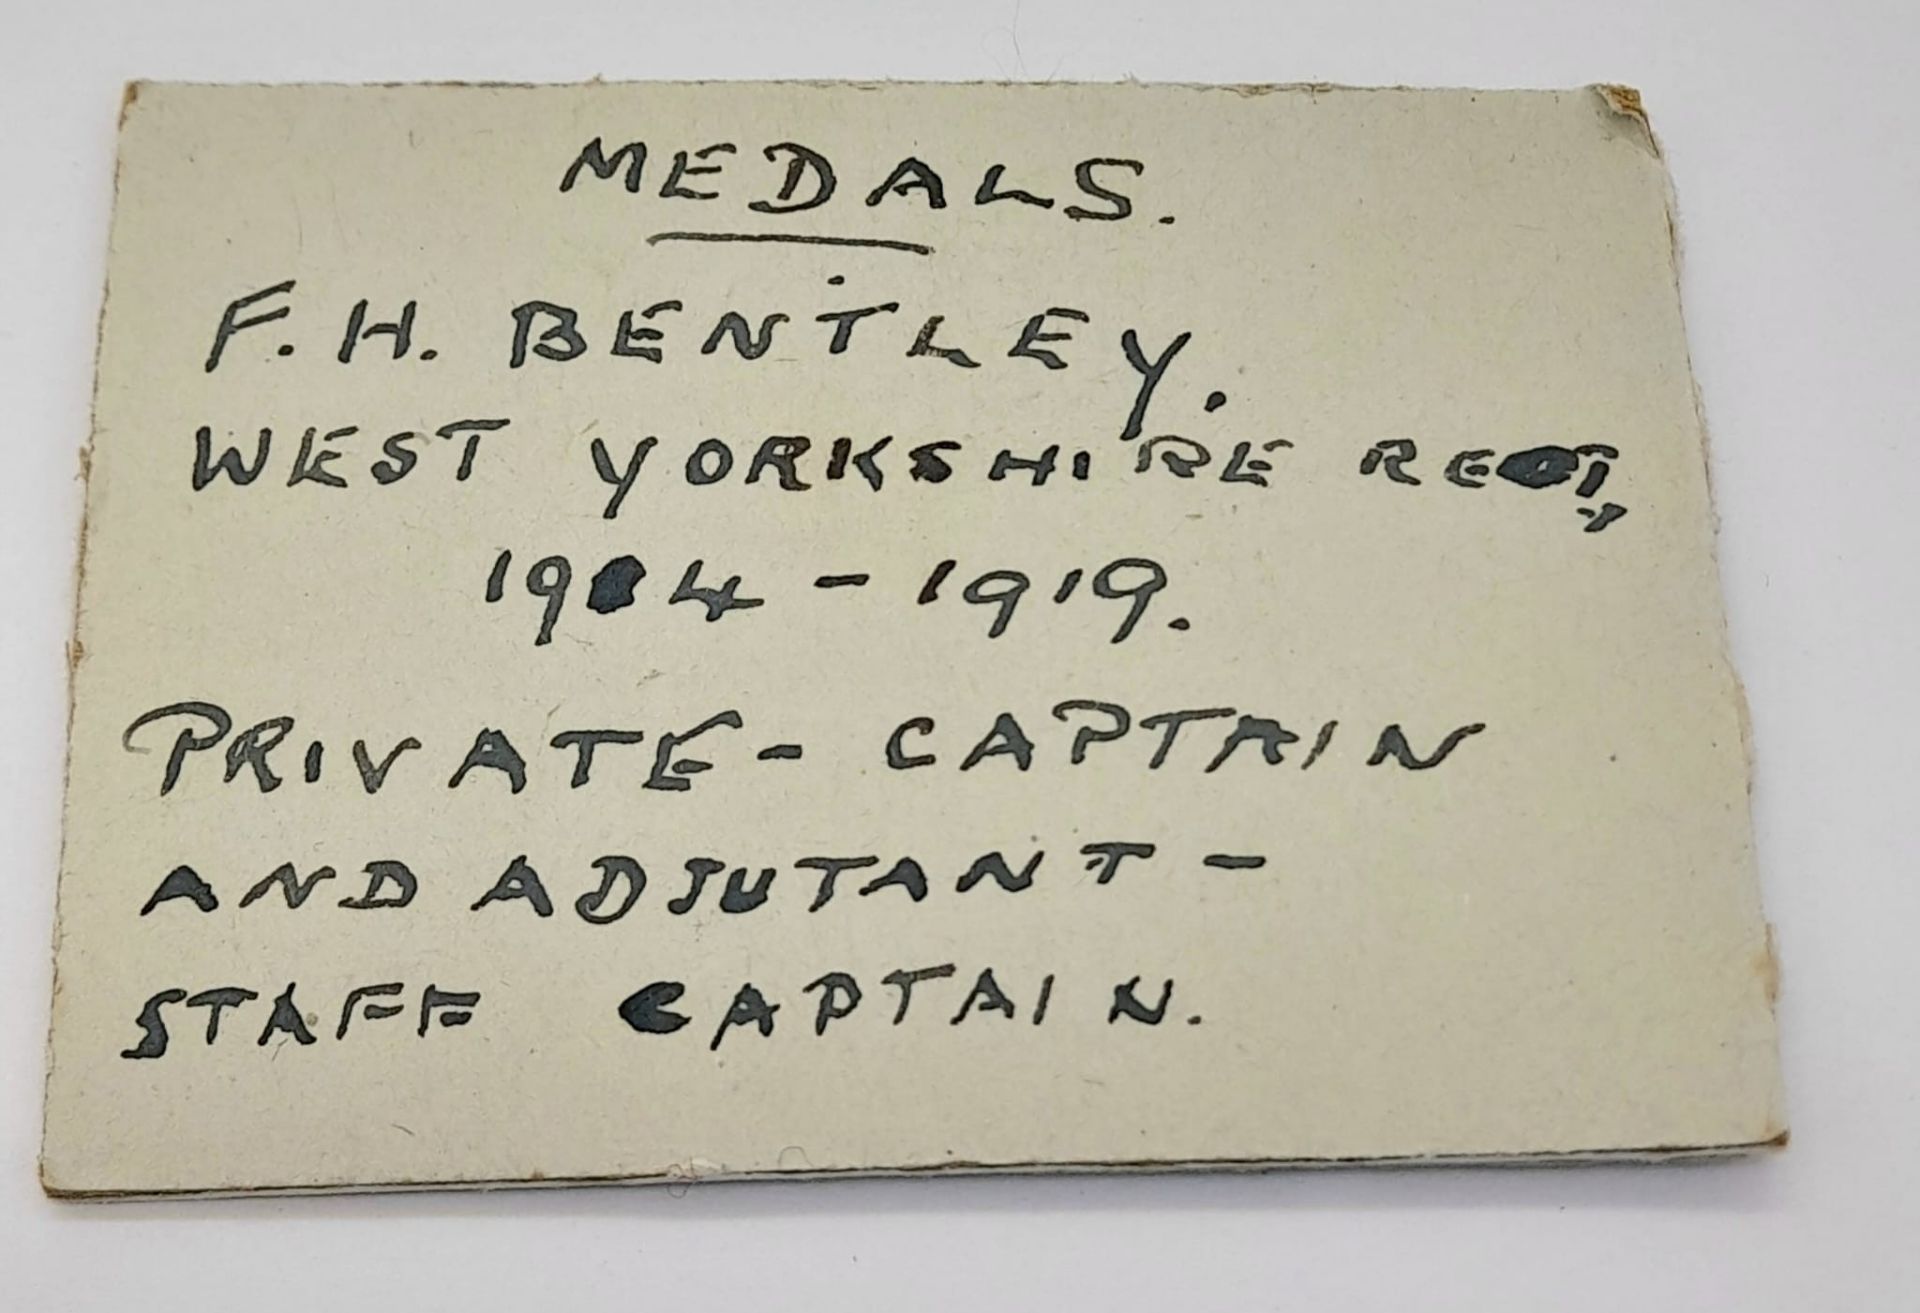 MEDALS.
F.H. BENTLEY.
WEST YORKSHIRE REGT,
1914 - 1919.
PRIVATE - CAPTAIN
AND ADJUTANT -
STAFF CAPTAIN.